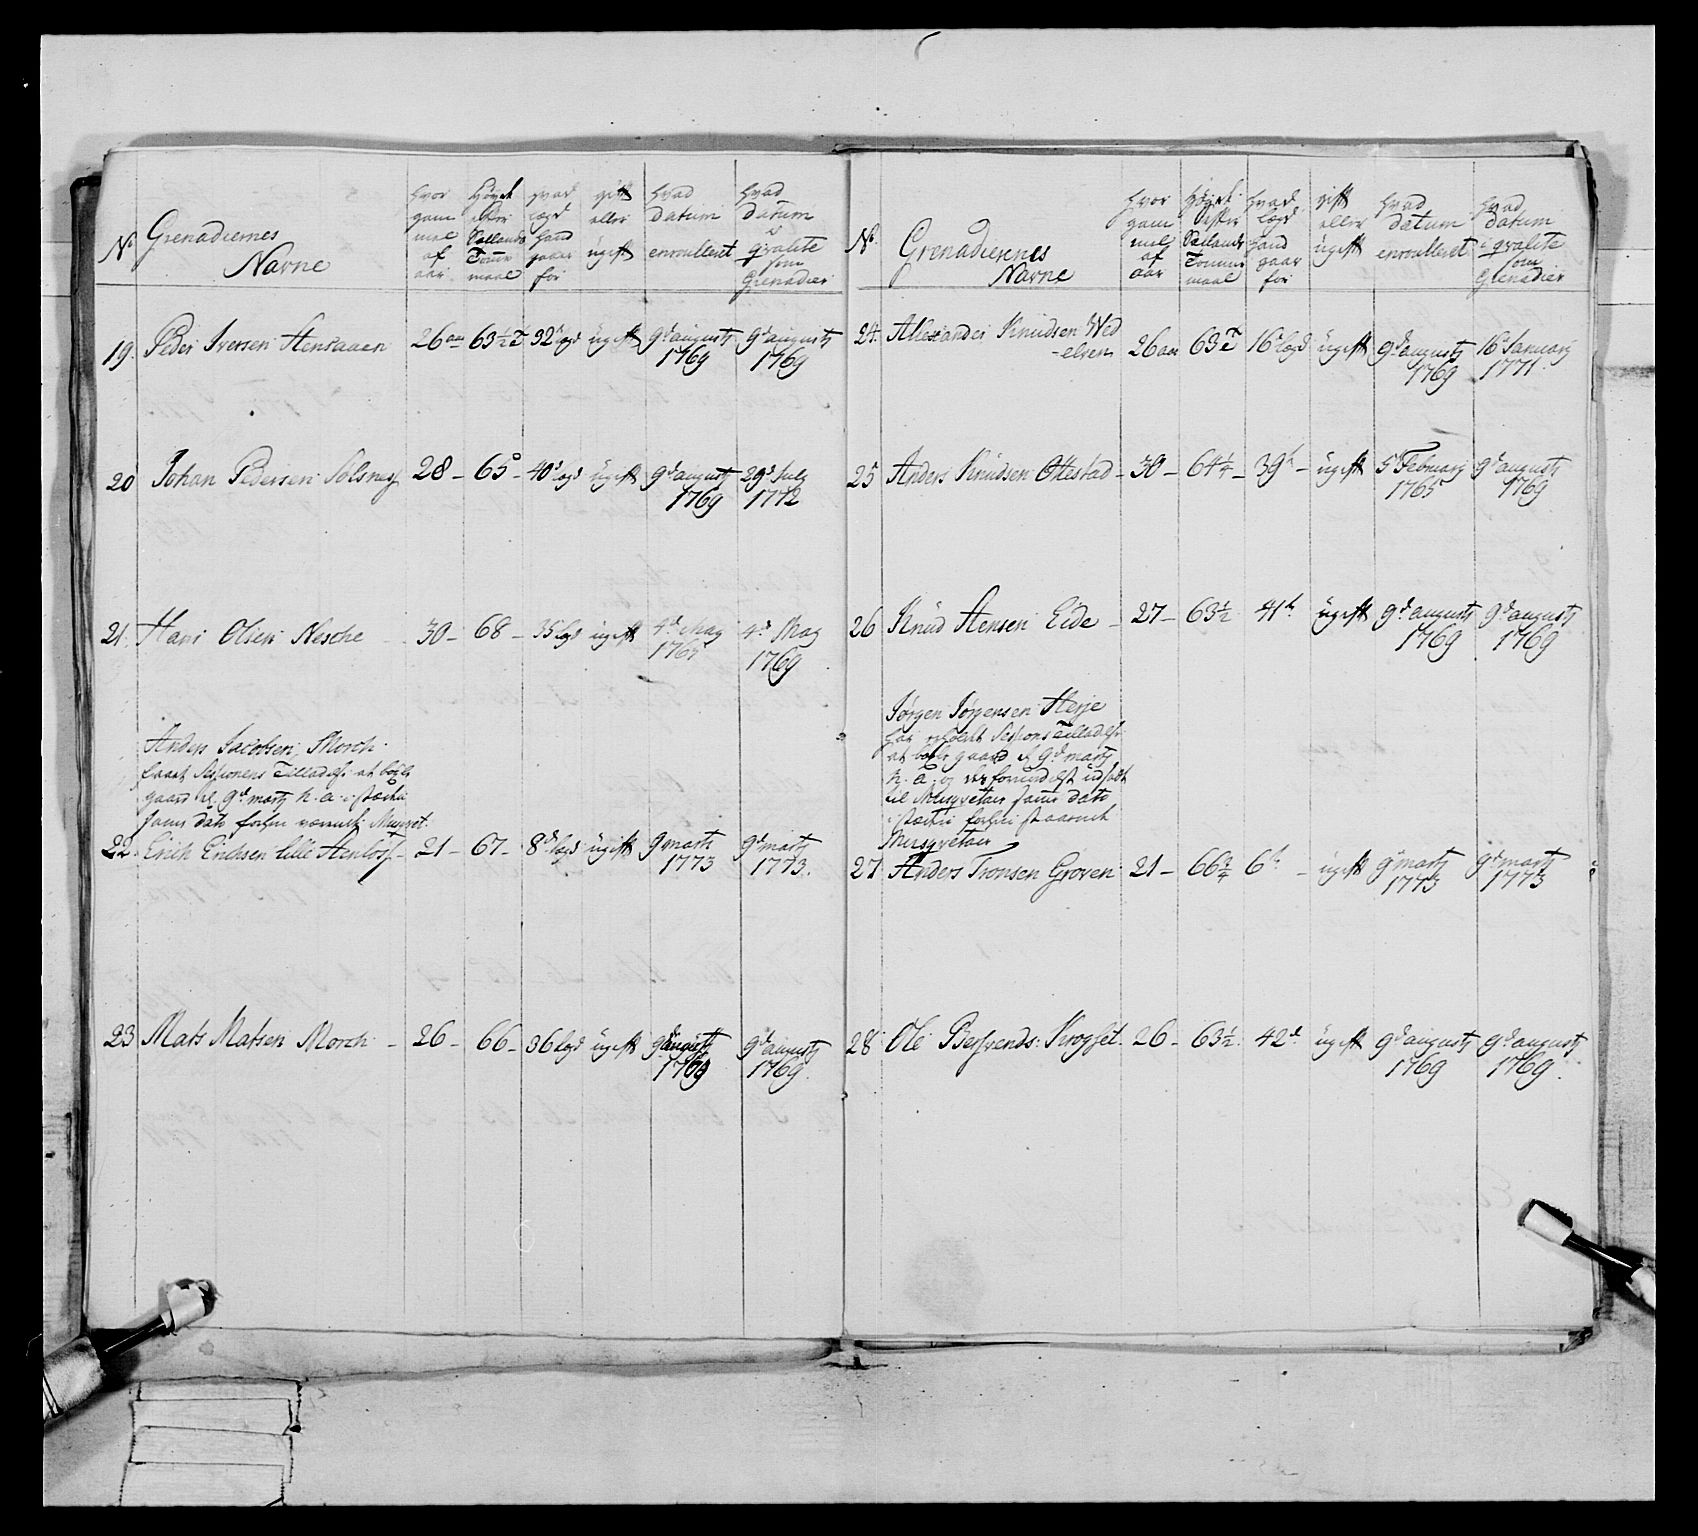 No Grenadiernes Navne
hvor gammel af aar
Høyde efter Sællands Tomme maal
hvad lægd hand gaar for
gift eller ugift
hvad datum enroulleret
hvad datum i qvalite som Grenadier
19. Peder Iversen Hensaaen 26 aar 63½ T 32 lægd ugift 9d augusty 1769 9d augusty 1769
20 Johan Pedersen Solsnes 28 – 65 – 40d lægd ugift 9d augusty 1769 29d July 1772
21. Hans Olsen Nesche – 30 – 68 – 35 lægd ugift 4d May 1769 4d May 1769
Anders Jacobsen Morch.
faaet Sessionens Tilladelse at bøxle
gaard d. 9d marty h. a. i stæden
samme dato forhen Musqvet.
22. Erich Erichsen lille Henløs – 21 – 67 – 8d lægd ugift 9 marti 1773 9d marty 1773.
23 Mats Matsen Morch – 26 – 66 – 36 lægd ugift 9d augusty 1769 9d augusty 1769.
No. Grenadiernes Navne
hvor gammel af aar
Høyde efter Sællands Tomme maal
hvad lægd hand gaar for
gift eller ugift
hvad datum enroulleret
hvad datum i qvalite som Grenadier
24. Alexander Knudsen Wed
-elven 26 aar 63 T 16d lægd ugift 9d augusty 1769 16d January 1771.
25 Anders Knudsen Ottestad – 30 – 64¼ – 39 – ugift 5d February 1765 9d augusty 1769
26 Knud Hensen Eide – 27 – 63½ 41 ugift 9d augusty 1769 9d augusty 1769
Jørgen Jørgensen Herje
har erholdet Sessions Tilladelse
at bøxle gaard d. 9d marty
h. a. og udsadt
til Musqvetair samme dato
i stæden forhen
Musqvetair
27 Anders Tronsen Groven 21 – 66¾ 6 – ugift 9 marty 1773 9d marty 1773
28 Ole Bersvends: Krogset. 26 – 63½. 42d. ugift 9d augusty 1769 9d augusty 1769.